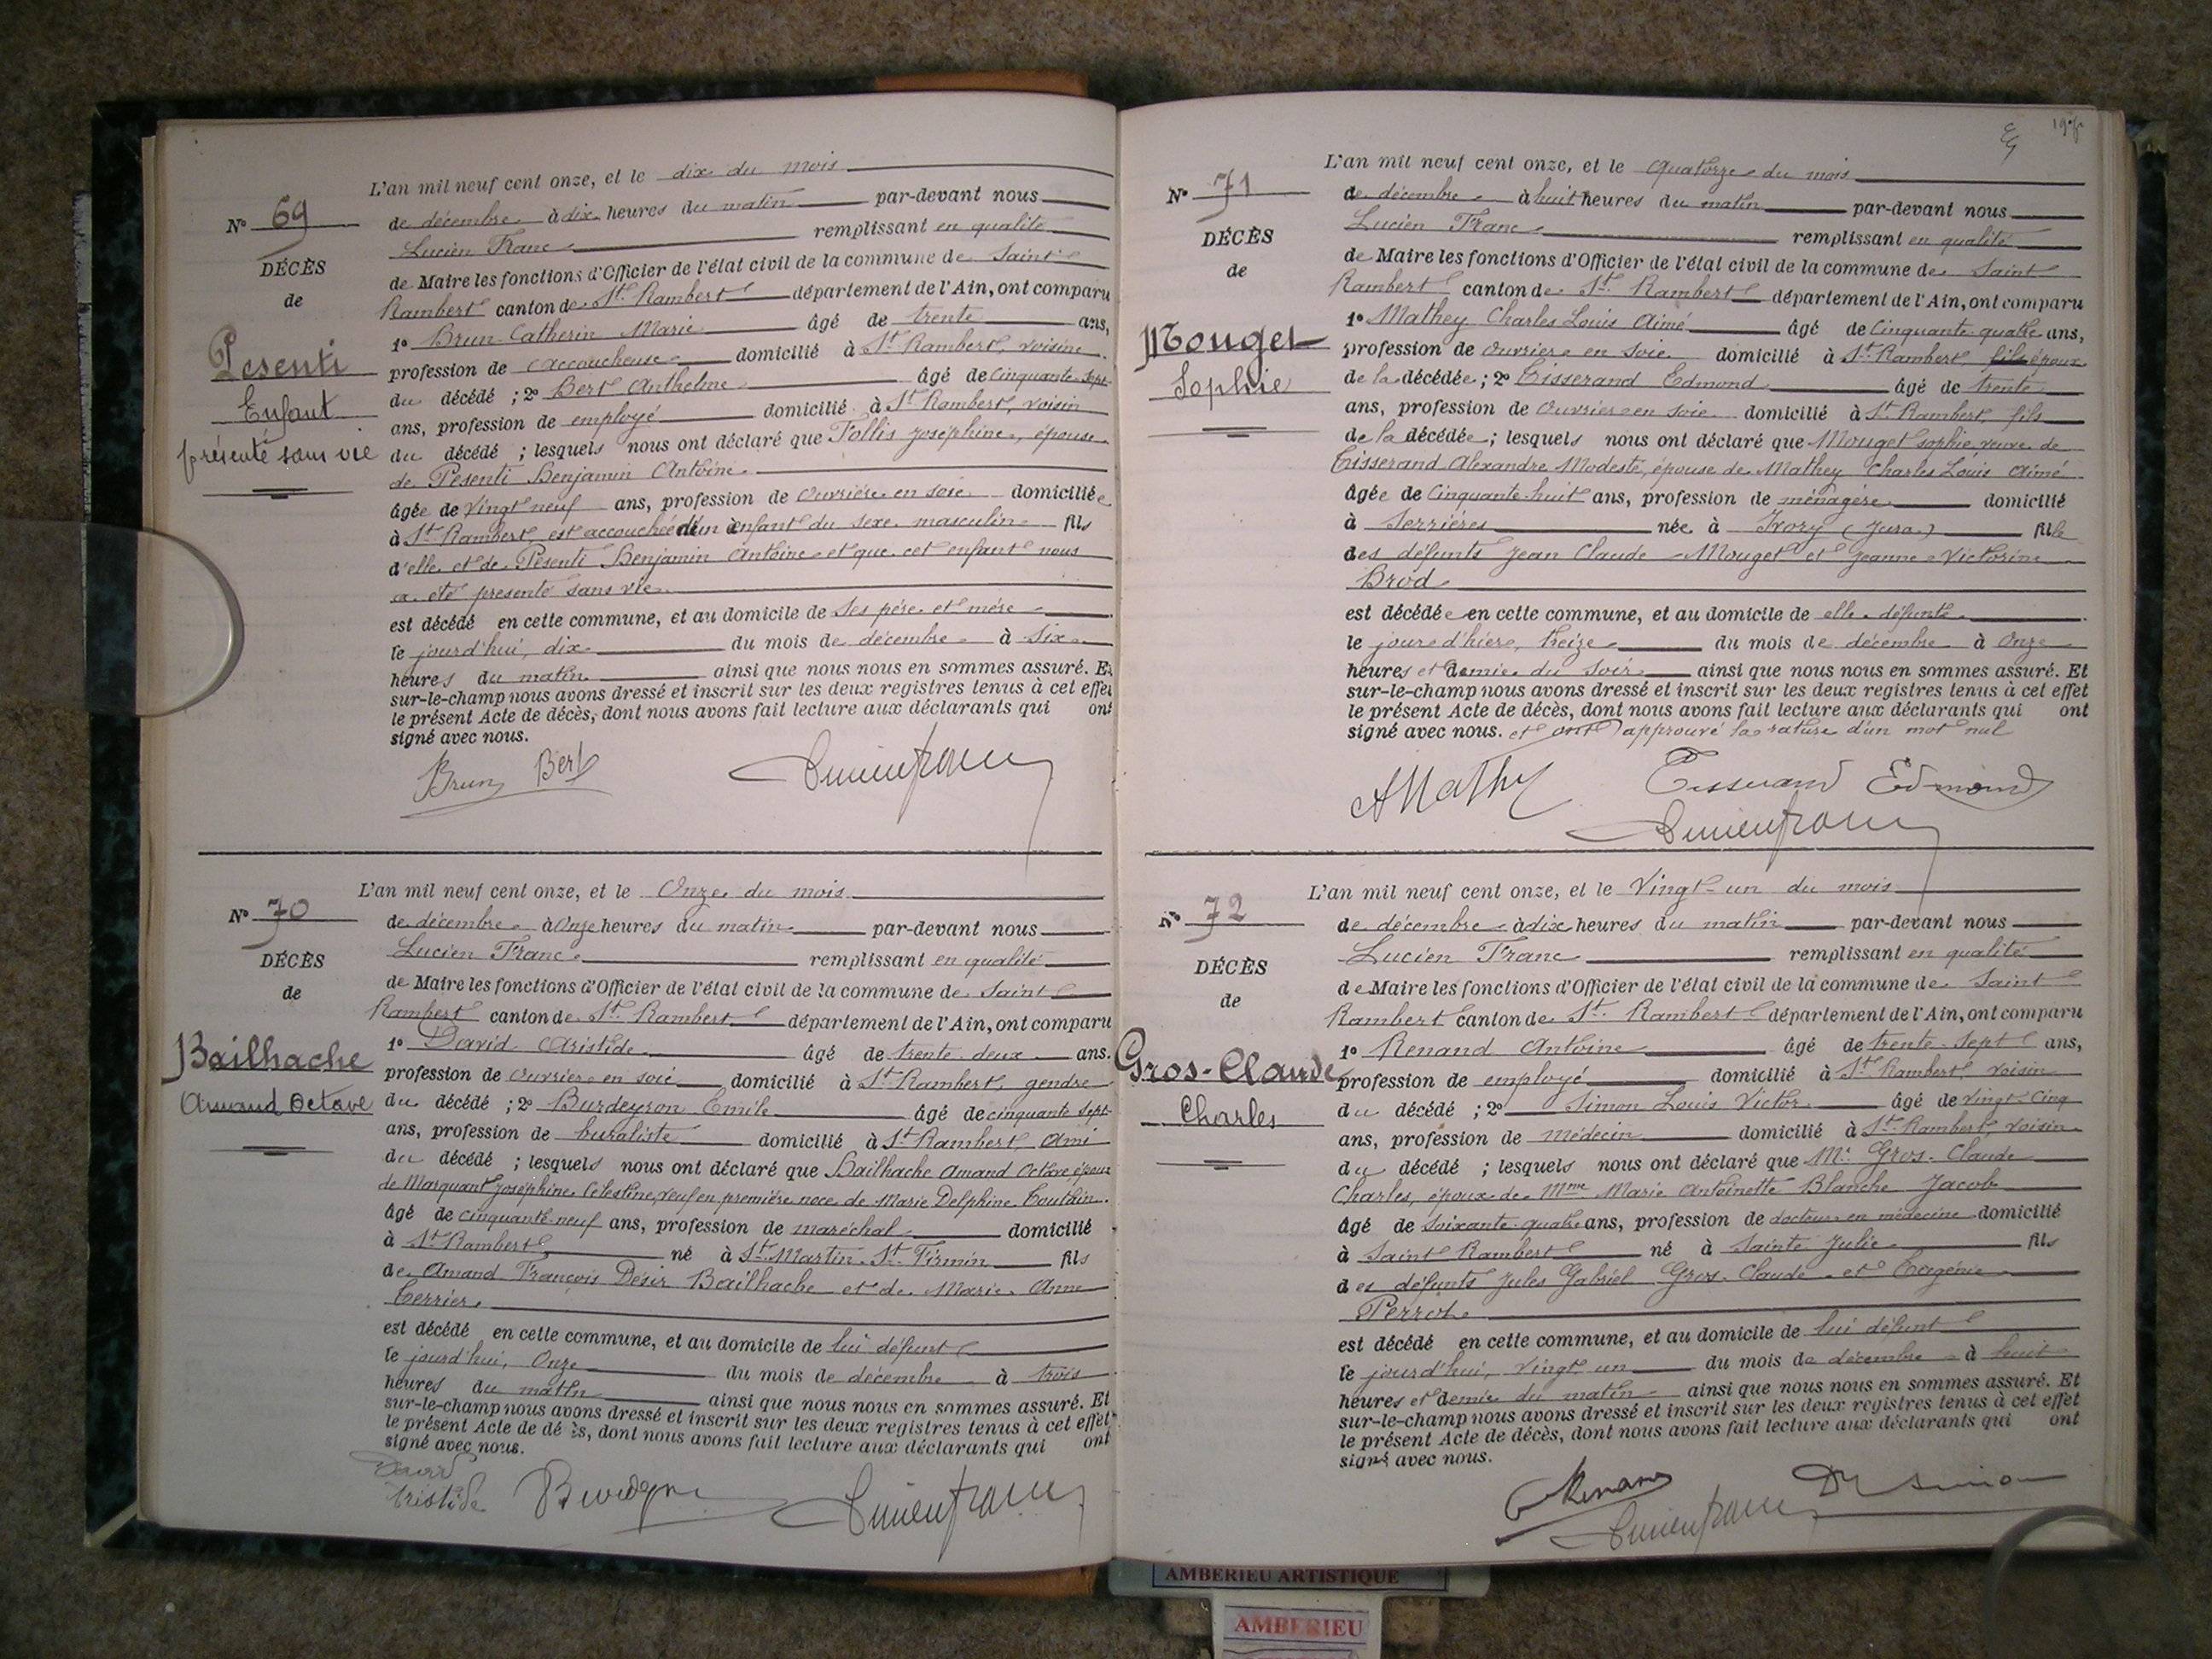 L'an mil neuf cent onze, et le dix du mois
N° 69
de décembre à dix heures du matin par-devant nous
Lucien Franc remplissant en qualité
DÉCÈS
de Maire les fonctions d'Officier de l'état civil de la commune de Saint
de
Rambert canton de St Rambert département de l'Ain, ont comparu
1° Brun Catherin Marie âgé de trente ans,
Pesenti
profession de accoucheuse domicilié à St Rambert, voisine
du décédé ; 2° Bert Anthelme âgé de cinquante sept
Enfant
ans, profession de employé domicilié à St Rambert, voisin
présenté sans vie
du décédé ; lesquels nous ont déclaré que Follis Joséphine, épouse
de Pesenti Benjamin Antoine
âgée de vingt neuf ans, profession de ouvrière en soie domiciliée
à St Rambert, est accouchée d'un enfant du sexe masculin fils
d'elle et de Pesenti Benjamin Antoine et que cet enfant nous
a été présenté sans vie
est décédé en cette commune, et au domicile de ses père et mère
le jourd'hui, dix du mois de décembre à six
heures du matin ainsi que nous nous en sommes assuré. Et
sur-le-champ nous avons dressé et inscrit sur les deux registres tenus à cet effet
le présent Acte de décès, dont nous avons fait lecture aux déclarants qui ont
signé avec nous.
Brun Bert Lucien franc
L'an mil neuf cent onze, et le Onze du mois
N° 70
de décembre à onze heures du matin par-devant nous
Lucien Franc remplissant en qualité
DÉCÈS
de Maire les fonctions d'Officier de l'état civil de la commune de Saint
de
Rambert canton de St Rambert département de l'Ain, ont comparu
1° David Aristide âgé de trente deux ans.
Bailhache
profession de ouvrier en soie domicilié à St Rambert, gendre
Amand Octave
du décédé ; 2° Burdeyron Emile âgé de cinquante sept
ans, profession de buraliste domicilié à St Rambert, ami
du décédé ; lesquels nous ont déclaré que Bailhache Amand Octave époux
de Marquant Joséphine Célestine, veuf en première noce de Marie Delphine
âgé de cinquante neuf ans, profession de maréchal domicilié
à St Rambert, né à St Martin St Firmin fils
de Amand François Désir Bailhache et de Marie Anne
Terrier
est décédé en cette commune, et au domicile de lui défunt
le jourd'hui, onze du mois de décembre à trois
heures du matin ainsi que nous nous en sommes assuré. Et
sur-le-champ nous avons dressé et inscrit sur les deux registres tenus à cet effet
le présent Acte de dé ès, dont nous avons fait lecture aux déclarants qui ont
signé avec nous.
David
Aristide Lucien franc
L'an mil neuf cent onze, et le quatorze du mois
N° 71
de décembre à huit heures du matin par-devant nous
Lucien Franc remplissant en qualité
DÉCÈS
de Maire les fonctions d'Officier de l'état civil de la commune de Saint
de
Rambert canton de St Rambert département de l'Ain, ont comparu
1° Mathey Charles Louis Aimé âgé de cinquante quatre ans,
Mouget
profession de ouvrier en soie domicilié à St Rambert, fils époux
Sophie
de la décédée ; 2° Tisserand Edmond âgé de trente
ans, profession de ouvrier en soie domicilié à St Rambert, fils
de la décédée ; lesquels nous ont déclaré que Mouget Sophie, veuve de
Tisserand Alexandre Modeste, épouse de Mathey Charles Louis Aimé
âgée de cinquante huit ans, profession de ménagère domicilié
à Serrières née à Ivory (Jura) fille
des défunts Jean Claude Mouget et Jeanne Victorine
Brod
est décédée en cette commune, et au domicile de elle défunte
le jour d'hier, treize du mois de décembre à onze
heures et demie du soir ainsi que nous nous en sommes assuré. Et
sur-le-champ nous avons dressé et inscrit sur les deux registres tenus à cet effet
le présent Acte de décès, dont nous avons fait lecture aux déclarants qui ont
signé avec nous. et ont approuvé la rature d'un mot nul
AMathey Tisserand Edmond
Lucien franc
L'an mil neuf cent onze, et le Vingt-un du mois
N° 72
de décembre à dix heures du matin par-devant nous
Lucien Franc remplissant en qualité
DÉCÈS
de Maire les fonctions d'Officier de l'état civil de la commune de Saint
de
Rambert canton de St Rambert département de l'Ain, ont comparu
1° Renand Antoine âgé de trente-sept ans,
Gros-Claude
profession de employé domicilié à St Rambert, voisin
Charles
du décédé ; 2° Simon Louis Victor âgé de vingt cinq
ans, profession de médecin domicilié à St Rambert, voisin
du décédé ; lesquels nous ont déclaré que Mr Gros-Claude
Charles, époux de Mme Marie Antoinette Blanche Jacob
âgé de soixante-quatre ans, profession de docteur en médecine domicilié
à Saint Rambert né à Sainte Julie fils
des défunts Jules Gabriel Gros-Claude et Eugénie
est décédé en cette commune, et au domicile de lui défunt
le jourd'hui, vingt un du mois de décembre à huit
heures et demie du matin ainsi que nous nous en sommes assuré. Et
sur-le-champ nous avons dressé et inscrit sur les deux registres tenus à cet effet
le présent Acte de décès, dont nous avons fait lecture aux déclarants qui ont
signé avec nous.
Renand Dr Simon
Lucien franc
AMBERIEU ARTISTIQUE
AMBERIEU